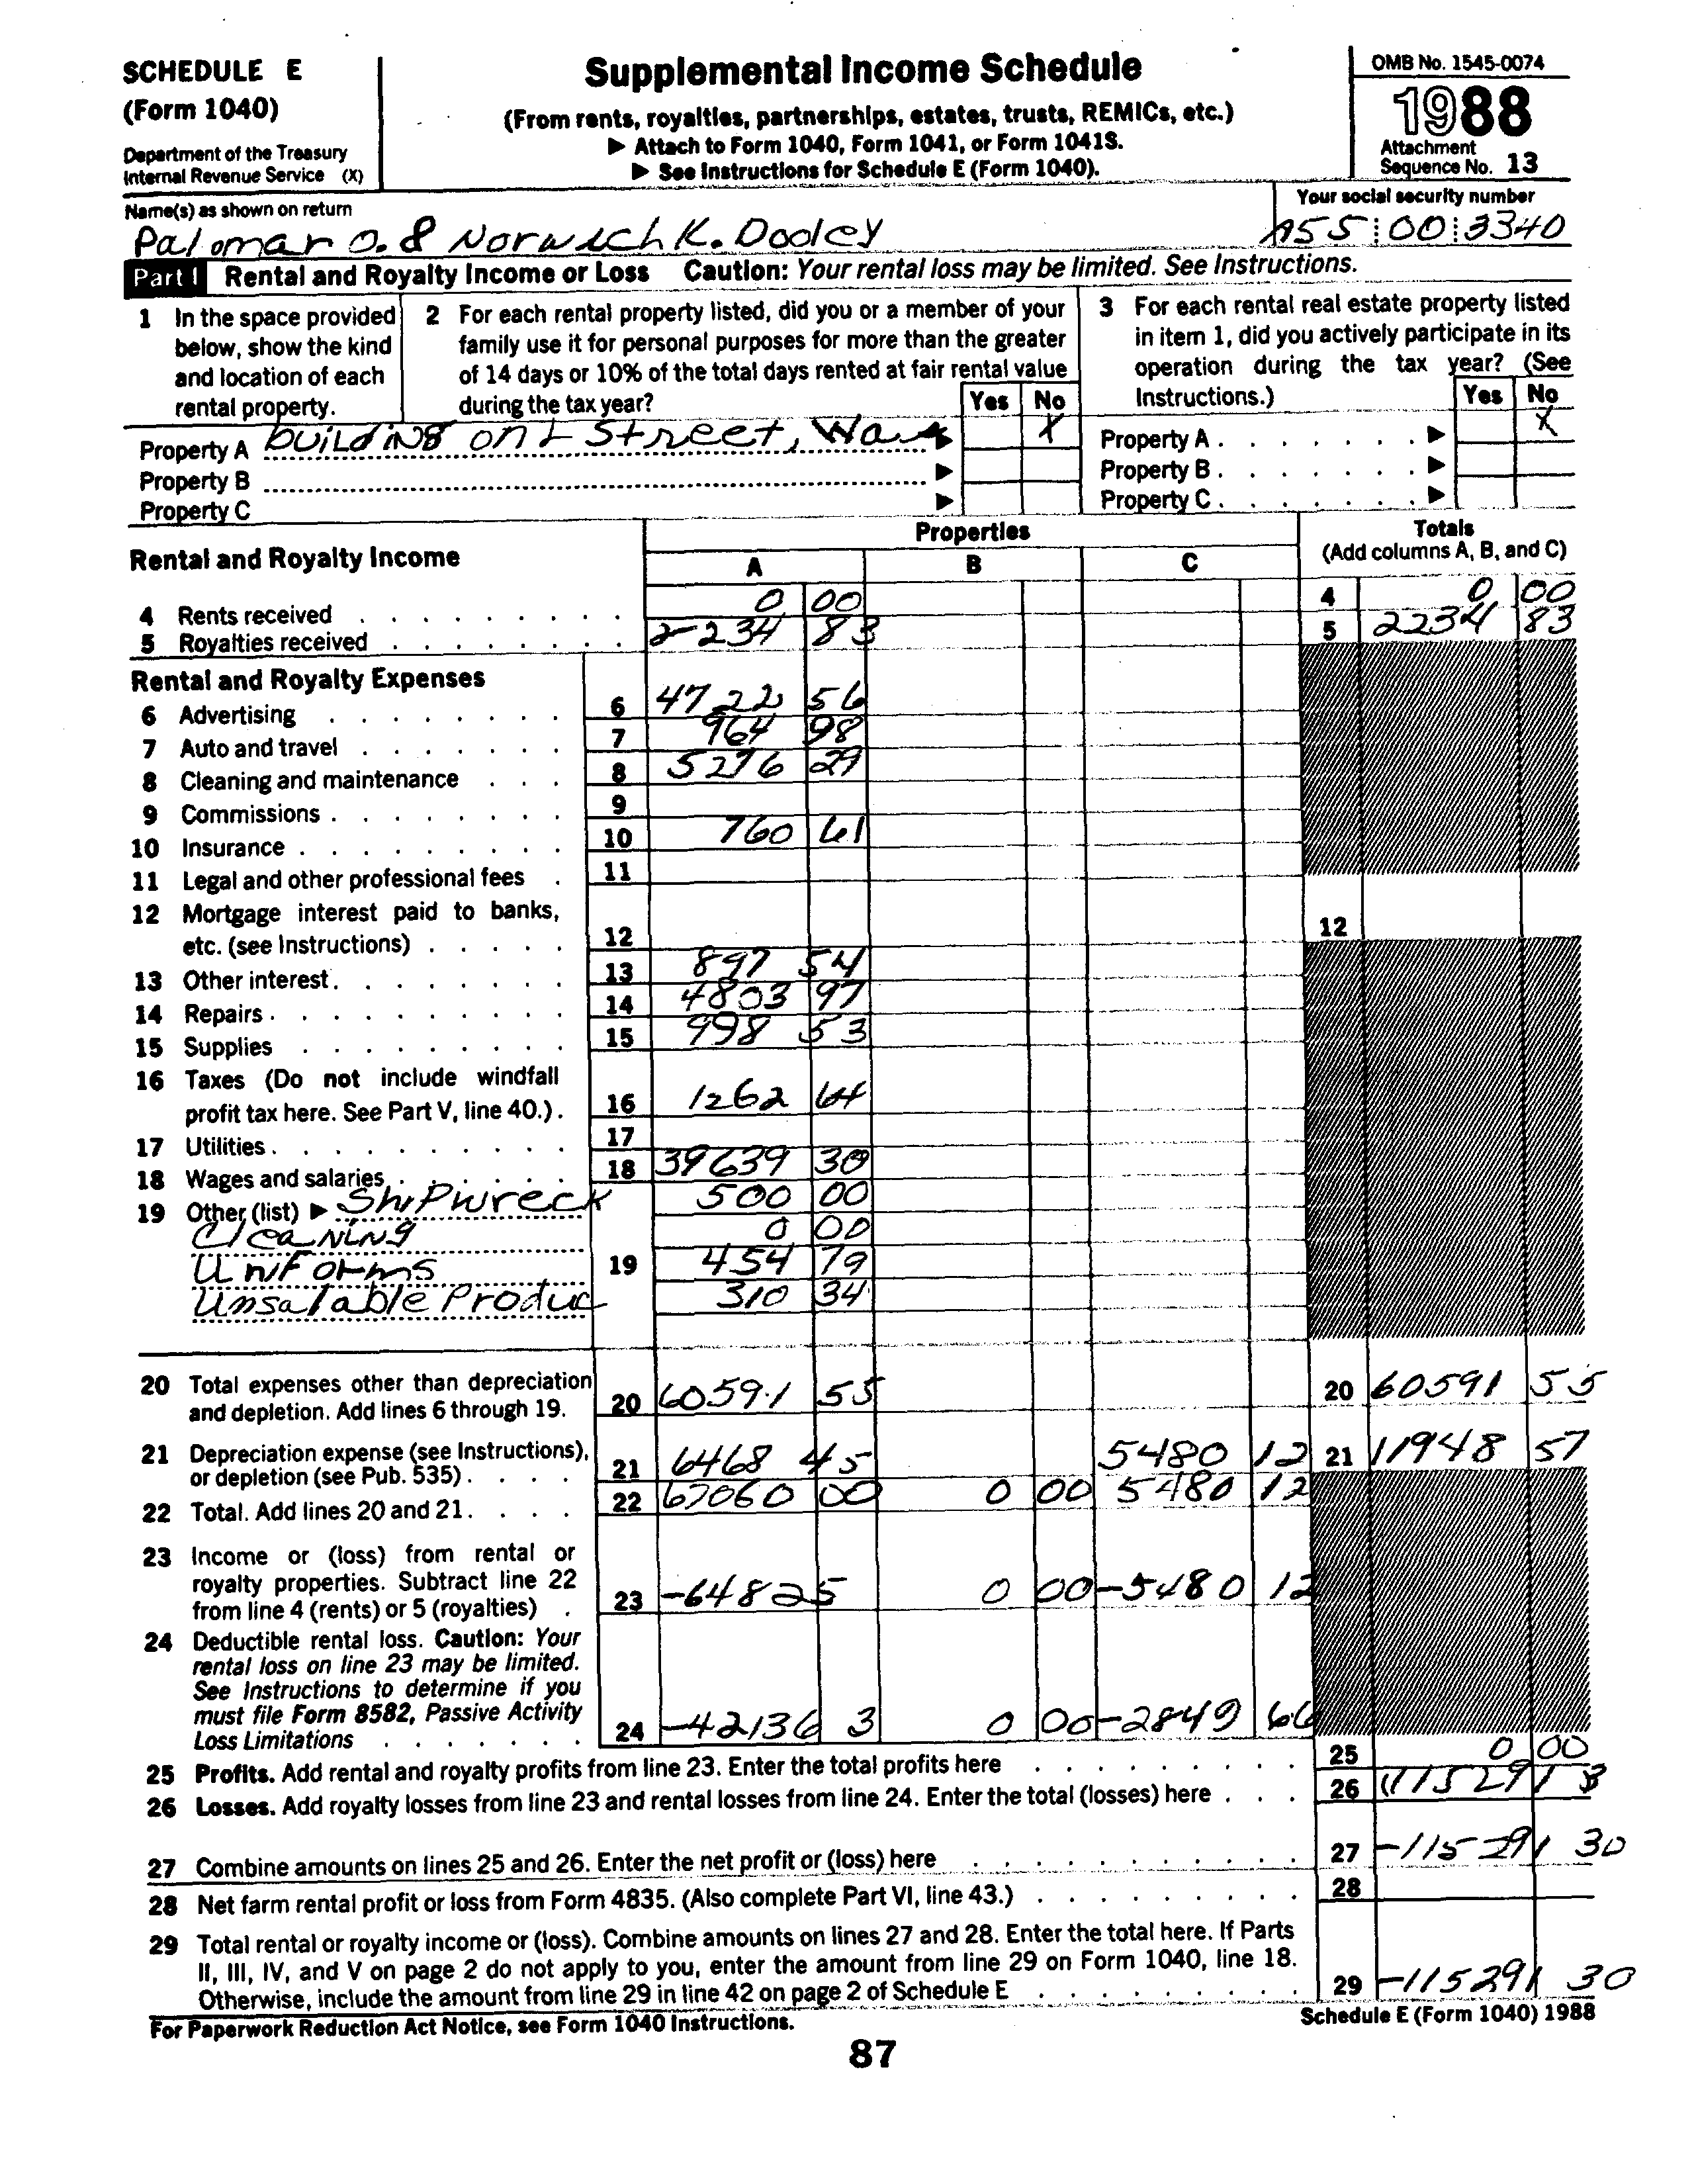 SCHEDULE E
(Form 1040)
Department of the Treasury
Internal Revenue Service (X)
Supplemental Income Schedule
(From rents, royalties, partnerships, estates, trusts, REMICs, etc.)
▶ Attach to Form 1040, Form 1041, or Form 1041S.
▶ See Instructions for Schedule E (Form 1040).
OMB No. 1545-0074
1988
Attachment
Sequence No. 13
Name(s) as shown on return
Palomar O. & Norwich K. Dooley
Your social security number
A55 00 3340
Part I Rental and Royalty Income or Loss Caution: Your rental loss may be limited. See Instructions.
1 In the space provided
below, show the kind
and location of each
rental property.
2 For each rental property listed, did you or a member of your
family use it for personal purposes for more than the greater
of 14 days or 10% of the total days rented at fair rental value
during the tax year? Yes No
3 For each rental real estate property listed
in item 1, did you actively participate in its
operation during the tax year? (See
Instructions.) Yes No
Property A building on L Street, Wa ▶ X Property A ▶ X
Property B ▶ Property B ▶
Property C ▶ Property C ▶
Rental and Royalty Income
Properties
A B C
Totals
(Add columns A, B, and C)
4 Rents received 0 00 4 0 00
5 Royalties received 2234 83 5 2234 83
Rental and Royalty Expenses
6 Advertising 6 4722 56
7 Auto and travel 7 964 98
8 Cleaning and maintenance 8 5276 29
9 Commissions 9
10 Insurance 10 760 61
11 Legal and other professional fees 11
12 Mortgage interest paid to banks,
etc. (see Instructions) 12 12
13 Other interest 13 897 54
14 Repairs 14 4803 97
15 Supplies 15 998 53
16 Taxes (Do not include windfall
profit tax here. See Part V, line 40.) 16 1262 64
17 Utilities 17
18 Wages and salaries 18 39639 30
19 Other (list) ▶ Shipwreck 500 00
Cleaning 0 00
Uniforms 19 454 79
Unsalable Produc 310 34
20 Total expenses other than depreciation
and depletion. Add lines 6 through 19. 20 60591 55 20 60591 55
21 Depreciation expense (see Instructions),
or depletion (see Pub. 535) 21 6468 45 5480 12 21 11948 57
22 Total. Add lines 20 and 21. 22 67060 00 0 00 5480 12
23 Income or (loss) from rental or
royalty properties. Subtract line 22
from line 4 (rents) or 5 (royalties) 23 -64825 0 00 -5480 12
24 Deductible rental loss. Caution: Your
rental loss on line 23 may be limited.
See Instructions to determine if you
must file Form 8582, Passive Activity
Loss Limitations 24 -42136 3 0 00 -2849 66
25 Profits. Add rental and royalty profits from line 23. Enter the total profits here 25 0 00
26 Losses. Add royalty losses from line 23 and rental losses from line 24. Enter the total (losses) here 26 (115291 3
27 Combine amounts on lines 25 and 26. Enter the net profit or (loss) here 27 -115291 30
28 Net farm rental profit or loss from Form 4835. (Also complete Part VI, line 43.) 28
29 Total rental or royalty income or (loss). Combine amounts on lines 27 and 28. Enter the total here. If Parts
II, III, IV, and V on page 2 do not apply to you, enter the amount from line 29 on Form 1040, line 18.
Otherwise, include the amount from line 29 in line 42 on page 2 of Schedule E 29 -115291 30
For Paperwork Reduction Act Notice, see Form 1040 Instructions.
Schedule E (Form 1040) 1988
87